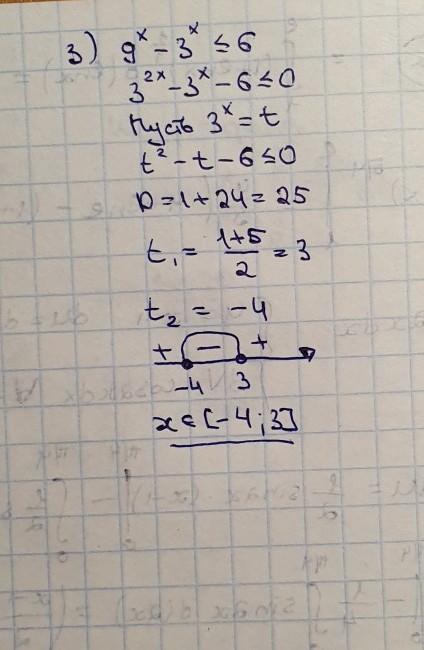 3) 9^x - 3^x ≤ 6
3^{2x} - 3^x - 6 ≤ 0
Пусть 3^x = t
t^2 - t - 6 ≤ 0
D = 1 + 24 = 25
t_1 = \frac{1+5}{2} = 3
t_2 = -4
+ - +
-4 3
x ∈ [-4; 3]